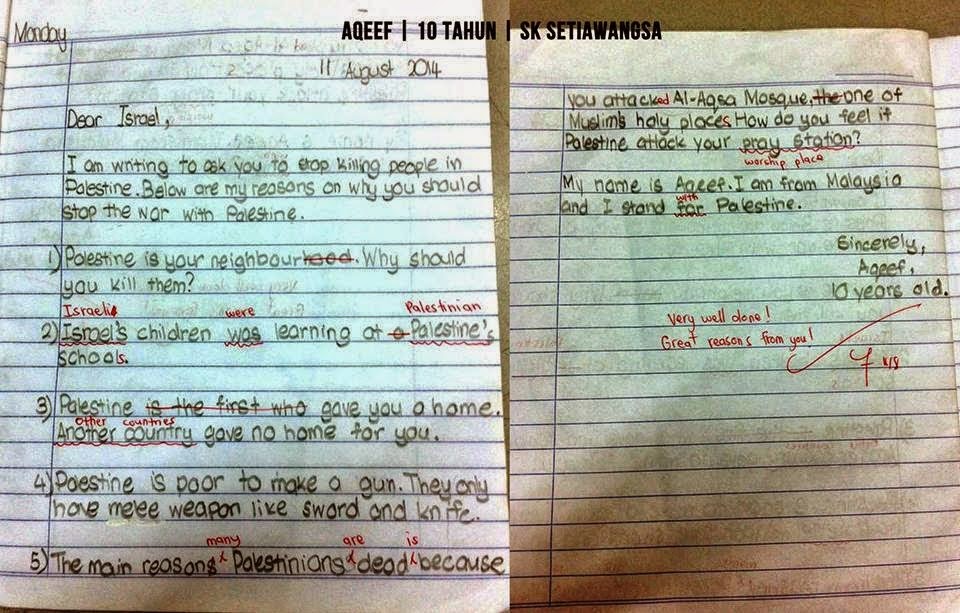 AQEEF | 10 TAHUN | SK SETIAWANGSA
Monday
11 August 2014
Dear Israel,
I am writing to ask you to stop killing people in
Palestine. Below are my reasons on why you should
stop the war with Palestine.
1) Palestine is your neighbourhood. Why should
you kill them?
Israeli were Palestinian
2) Israel's children was learning at a Palestine's
schools.
3) Palestine is the first who gave you a home.
Other countries
Another country gave no home for you.
4) Paestine is poor to make a gun. They only
have melee weapon like sword and knife.
many are is
5) The main reasons Palestinians dead because
you attacked Al-Aqsa Mosque, the one of
Muslim's holy places. How do you feel if
Palestine attack your pray station?
worship place
My name is Aqeef. I am from Malaysia
with
and I stand for Palestine.
Sincerely,
Aqeef,
10 years old.
Very well done!
Great reasons from you!